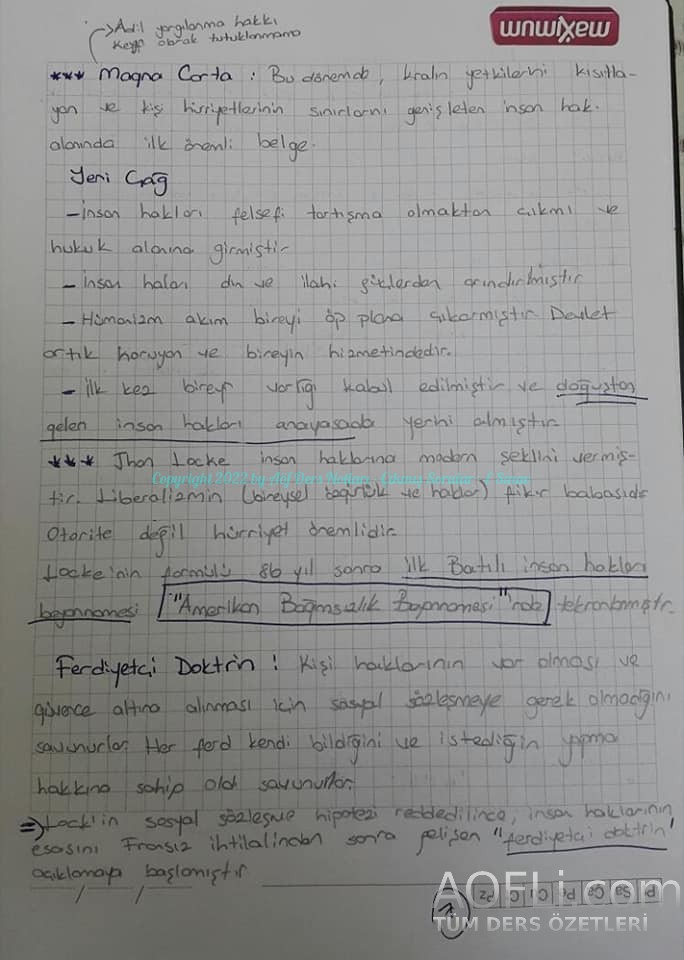 →Adil yargılanma hakkı
Keyfi olarak tutuklanmama
maximum
*** Magna Carta : Bu dönemde, kralın yetkilerini kısıtla-
yan ve kişi hürriyetlerinin sınırlarını genişleten insan hak.
alanında ilk önemli belge.
Yeni Çağ
-İnsan hakları felsefi tartışma olmaktan çıkmı ve
hukuk alanına girmiştir
- İnsan hakları din ve ilahi güçlerden arındırılmıştır
- Hümanizm akım bireyi öp plana çıkarmıştır Devlet
artık koruyan ve bireyin hizmetindedir.
- İlk kez bireyn varlığı kabul edilmiştir ve doğuştan
gelen insan hakları anayasada yerini almıştır
*** Jhon Locke insan haklarına modern şeklini vermiş-
Copyright 2022 by Aöf Ders Notları
tir. Liberalizmin (bireysel özgürlük ve haklar) fikir babasıdır
Otorite değil hürriyet önemlidir
Locke'nin formülü 86 yıl sonra ilk Batılı insan hakları
beyannamesi "Amerikan Bağımsızlık Beyannamesi"nde tekrarlanmıştr.
Ferdiyetçi Doktrin : Kişi haklarının var olması ve
güvence altına alınması için sosyal sözleşmeye gerek olmadığını
savunurlar. Her ferd kendi bildiğini ve istediğin yapma
hakkına sahip old savunurlar.
⇒Lock'in sosyal sözleşme hipotezi reddedilince, insan haklarının
esasını Fransız ihtilalinden sonra gelişen "ferdiyetçi doktrin"
açıklamaya başlamıştır
__/__/__
1
Pt Sa Ça Pe Cu Ct Pz
AOFLi.com
TÜM DERS ÖZETLERİ